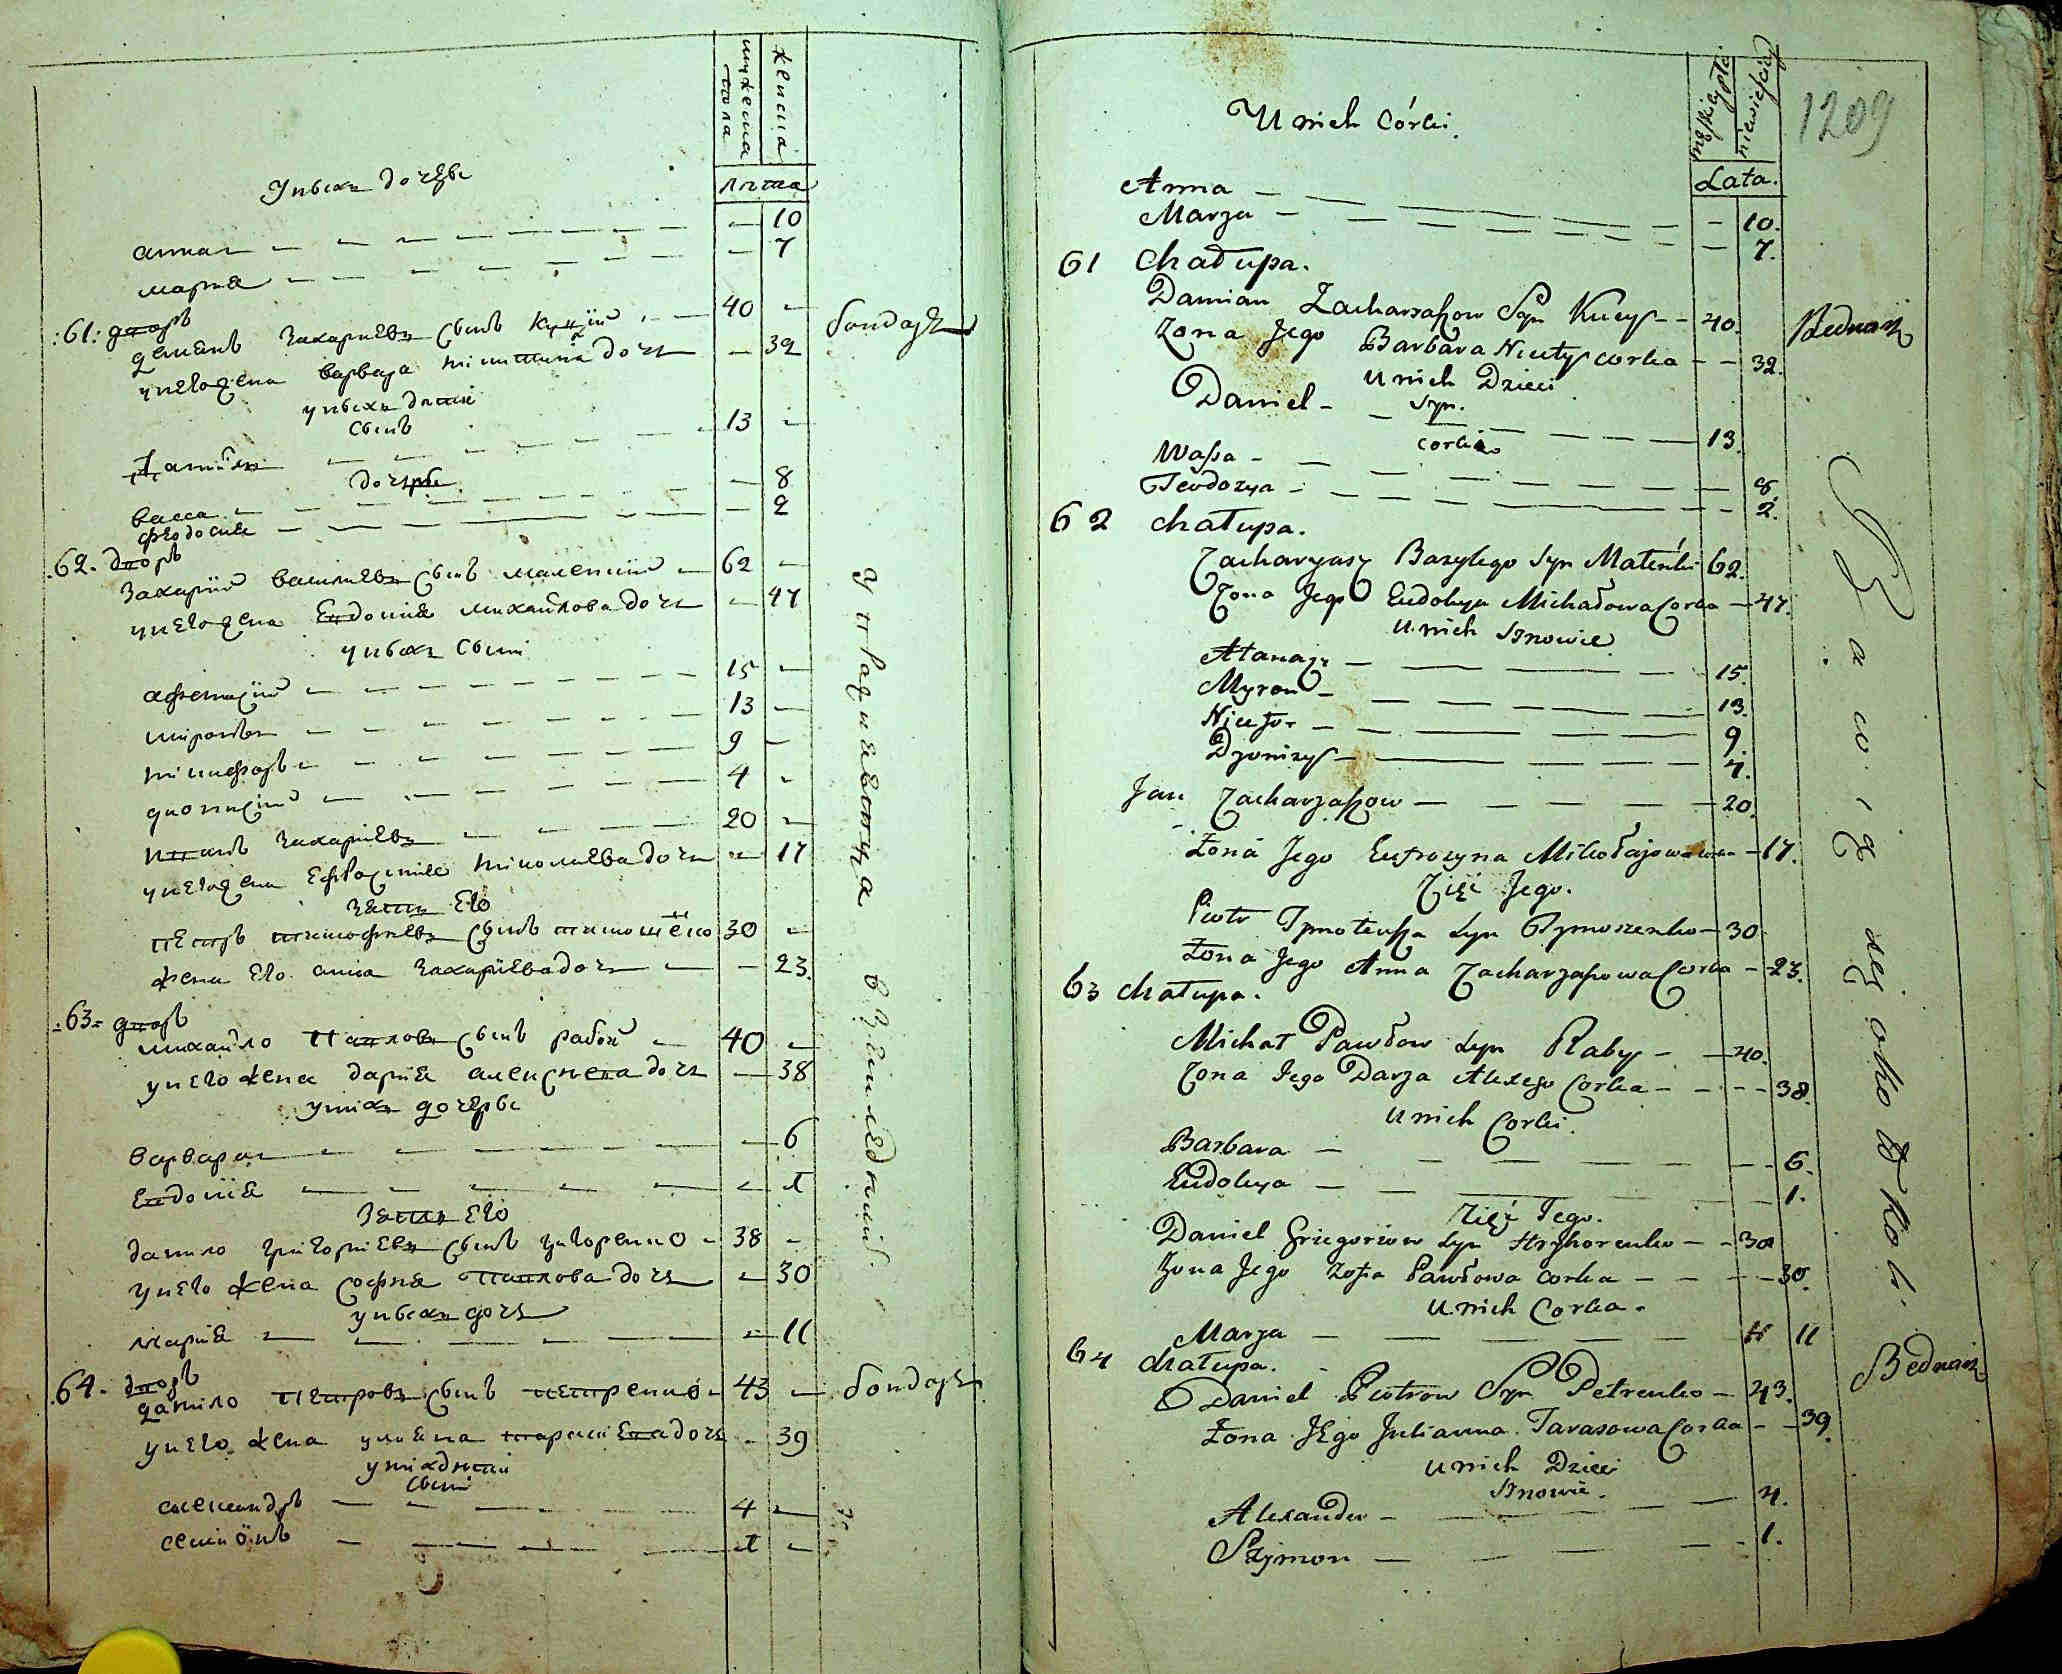 мужеска
пола
женска
лѣта
У нихъ дочери
анна — 10
мария — 7
:61: дворъ
демянъ захариевъ сынъ куций — 40 —
бондарь
у него жена варвара никитина дочь — 32
у нихъ дети
сынъ
данило 13 —
дочери
васса — 8
феодосия — 2
.62. дворъ
захарий василиевъ сынъ маленкий — 62 —
у него жена евдокия михайлова дочь — 47
у нихъ сыны
афанасий — 15 —
миронъ — 13 —
никифоръ — 9 —
дионисий — 4 —
иванъ захариевъ — 20 —
у него жена ефросиния николаева дочь — 17
зять его
петръ тимофиевъ сынъ тимошенко 30 —
жена его анна захариева дочь — 23.
:63: дворъ
михайло павловъ сынъ рабой — 40 —
у него жена дария алексиева дочь — 38
у нихъ дочери
варвара — 6
евдокия — 1
зять его
данило григориевъ сынъ григоренко — 38 —
у него жена софия павлова дочь — 30
у нихъ дочь
мария — 11
.64. дворъ
данило петровъ сынъ петренко — 43 — бондарь
у него жена улияна тарасиева дочь — 39
у нихъ дети
сыны
александръ — 4 —
семионъ — 1 —
męskiey płci
niewieściey
Lata.
1209
U nich Córki.
Anna — — 10.
Marya — — 7.
61 Chałupa.
Damian Zacharyaszow Syn Kucy — 40. Bednarz
Zona Jego Barbara Nikity corka — — 32.
U nich Dzieci
Syn.
Daniel — 13.
corki
Wassa — 8.
Teodozya — 2.
62 Chałupa.
Zacharyasz Bazylego Syn Maleńki 62.
Zona Jego Eudokya Michałowa Corka — 47.
U nich Synowie
Atanazy — 15.
Myron — 13.
Nicefor — 9.
Dyonizy — 4.
Jan Zacharyaszow — 20.
Żona Jego Eufrozyna Mikołajowa corka — 17.
Zięć Jego.
Piotr Tymoteusza Syn Tymoszenko — 30
Żona Jego Anna Zacharyaszowa Corka — 23.
63 Chałupa.
Michał Pawłow Syn Raby — 40.
Zona Jego Darya Alexego Corka — 38.
U nich Corki.
Barbara — 6.
Eudokya — 1.
Zięć Jego.
Daniel Griegoriow Syn Hryhorenko — 38
Zona Jego Zofia Pawłowa corka — 30.
U nich Corka.
Marya — 11
64 Chałupa.
Daniel Piotrow Syn Petrenko — 43. Bednarz
Żona Jego Julianna Tarasowa Corka — 39.
U nich Dzieci
Synowie.
Alexander — 4.
Szymon — 1.